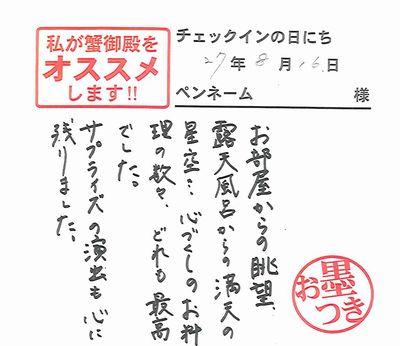 私が蟹御殿を
オススメ
します!!
チェックインの日にち
27年8月16日
ペンネーム 様
お部屋からの眺望、
露天風呂からの満天の
星空…心づくしのお料
理の数々、どれも最高
でした。
サプライズの演出も心に
残りました。
お墨つき